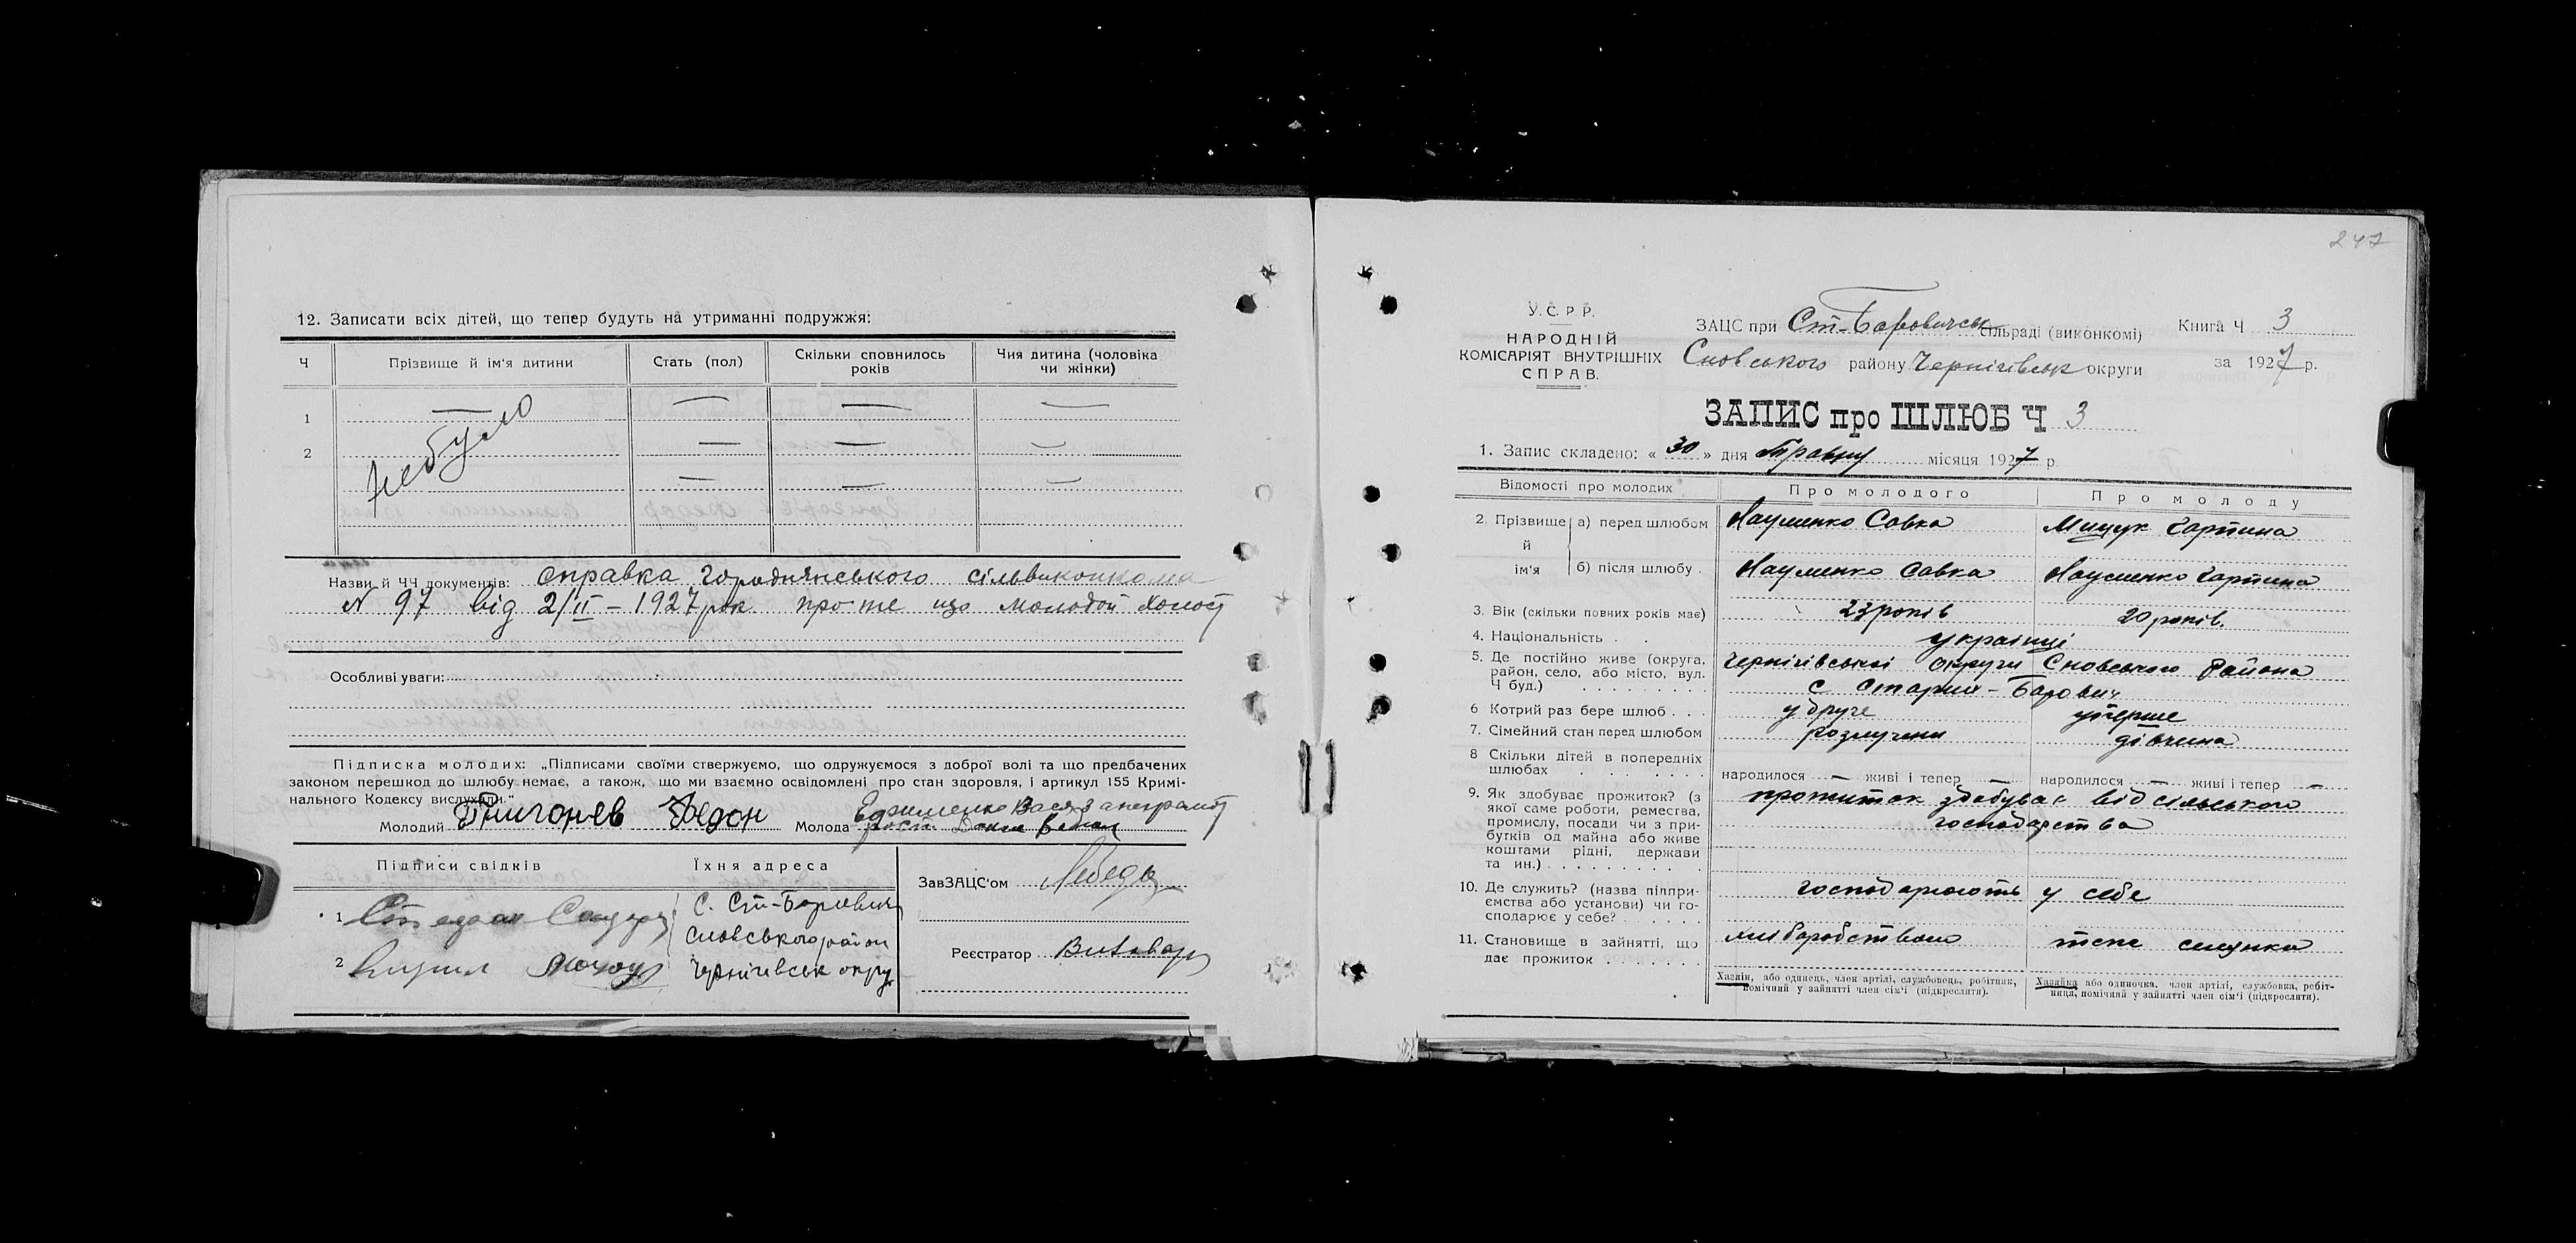 12. Записати всіх дітей, що тепер будуть на утриманні подружжя:
Ч Прізвище й ім'я дитини Стать (пол) Скільки сповнилось років Чия дитина (чоловіка чи жінки)
1
2
не було
Назви й ЧЧ документів: справка Городнянського сільвиконкома
N 97 від 2/II – 1927 рок про те що молодой холост
Особливі уваги:
Підписка молодих: „Підписами своїми стверджуємо, що одружуємося з доброї волі та що предбачених
законом перешкод до шлюбу немає, а також, що ми взаємно освідомлені про стан здоров'я, і артикул 155 Кримі-
нального Кодексу вислухали."
Молодий Григорьев Федор Молода Ефименко
Підписи свідків Їхня адреса
1 с. Ст-Боровичі
Сновського район
2 Чернігівськ округ
ЗавЗАЦС'ом Лебедь
Реєстратор
247
У.С.Р.Р.
НАРОДНІЙ
КОМІСАРІЯТ ВНУТРІШНІХ
СПРАВ.
ЗАЦС при Ст-Боровичськ сільраді (виконкомі) Книга Ч 3
Сновського району Чернігівськ округи за 1927 р.
ЗАПИС про ШЛЮБ Ч 3
1. Запис складено: « 30 » дня Травня місяця 1927 р.
Відомості про молодих Про молодого Про молоду
2. Прізвище й ім'я а) перед шлюбом Науменко Савка Мищук
б) після шлюбу Науменко Савка Науменко
3. Вік (скільки повних років має) 23 років 20 років.
4. Національність українці
5. Де постійно живе (округа, район, село, або місто, вул. Ч буд.) Чернігівської округи Сновського Района
с Старих-Борович
6 Котрий раз бере шлюб у друге уперше
7. Сімейний стан перед шлюбом Розлучени дівчина
8 Скільки дітей в попередніх шлюбах народилося — живі і тепер — народилося — живі і тепер —
9. Як здобуває прожиток? (з якої саме роботи, ремества, промислу, посади чи з прибутків од майна або живе коштами рідні, держави та ин.) прожиток здобуває від сільського
господарства
10. Де служить? (назва підприємства або установи) чи господарює у себе? господарюють у себе
11. Становище в зайнятті, що дає прожиток хліборобством теж
Хазяїн, або одинець, член артілі, службовець, робітник, помічний у зайнятті член сім'ї (підкреслити).
Хазяйка або одиночка, член артілі, службовка, робітниця, помічний у зайнятті член сім'ї (підкреслити).